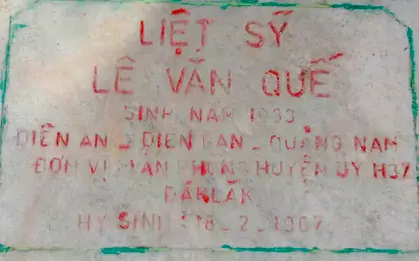 LIỆT SỸ
LÊ VĂN QUẾ
SINH NĂM 1933
ĐIỆN AN - ĐIỆN BÀN - QUẢNG NAM
ĐƠN VỊ: VĂN PHÒNG HUYỆN ỦY H37
ĐĂKLĂK
HY SINH: 18-2-1967